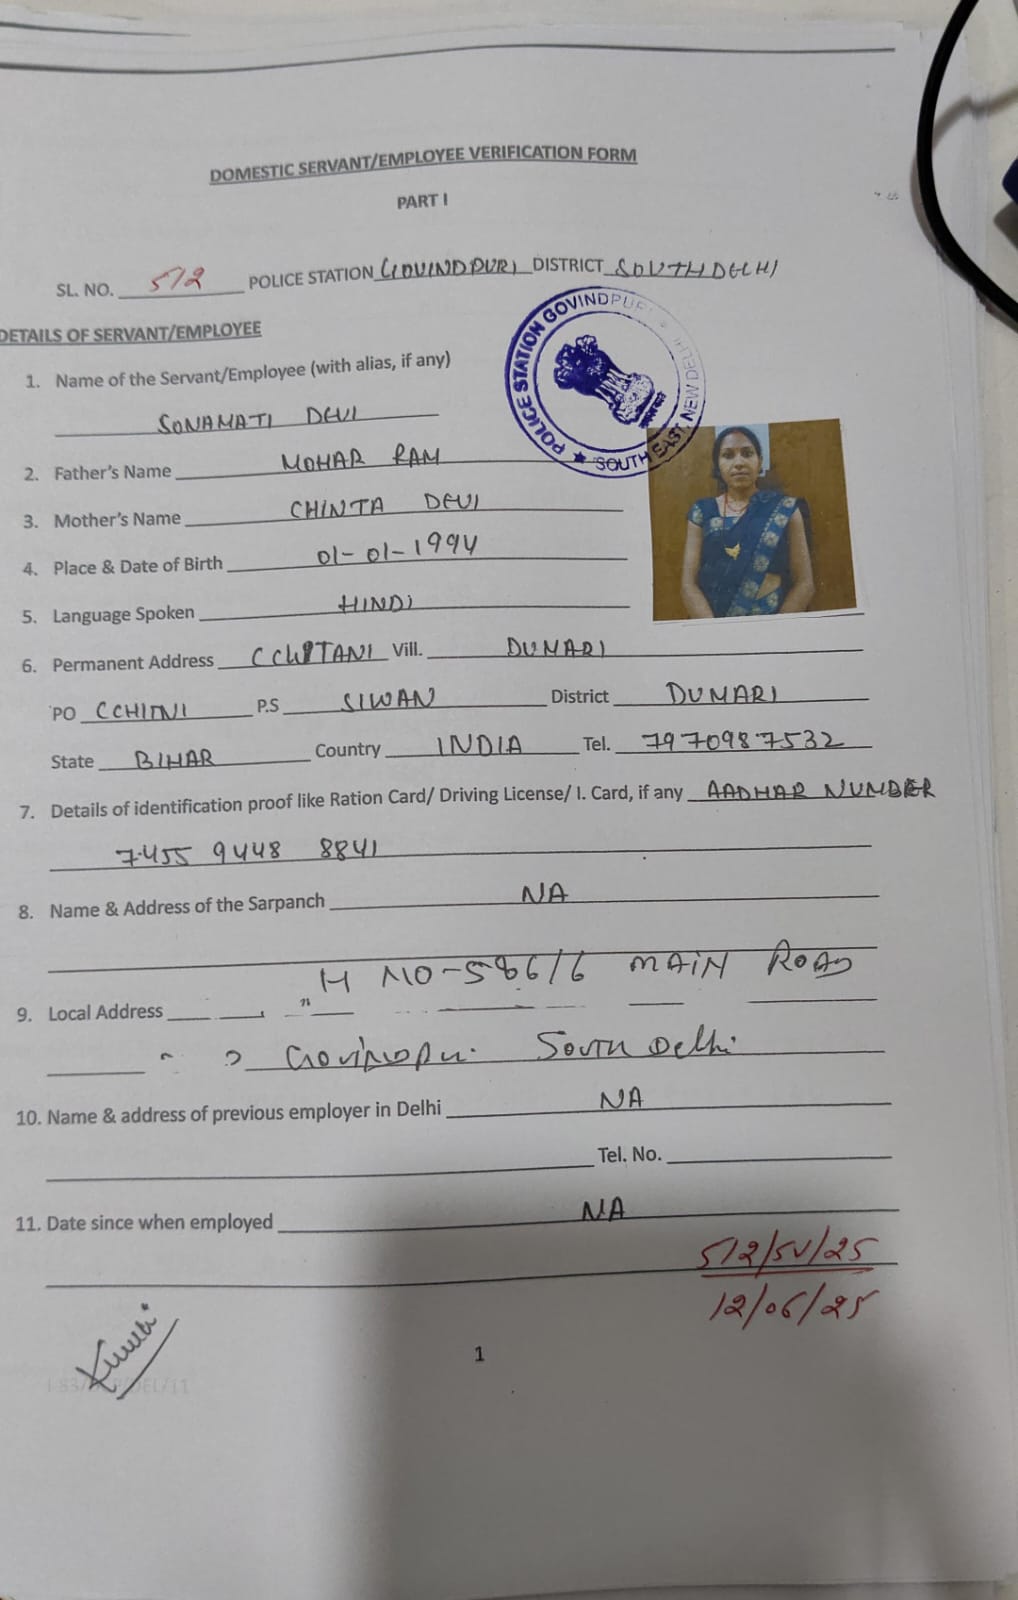 DOMESTIC SERVANT/EMPLOYEE VERIFICATION FORM
PART I
SL. NO. 512 POLICE STATION GOVINDPURI DISTRICT SOUTH DELHI
POLICE STATION GOVINDPURI ★ SOUTH EAST, NEW DELHI ★
DETAILS OF SERVANT/EMPLOYEE
1. Name of the Servant/Employee (with alias, if any)
SONAMATI DEVI
2. Father's Name MOHAR RAM
3. Mother's Name CHINTA DEVI
4. Place & Date of Birth 01-01-1994
5. Language Spoken HINDI
6. Permanent Address Vill. DUMARI
PO P.S SIWAN District DUMARI
State BIHAR Country INDIA Tel. 7970987532
7. Details of identification proof like Ration Card/ Driving License/ I. Card, if any AADHAR NUMBER
7455 9448 8841
8. Name & Address of the Sarpanch NA
H NO-586/6 MAIN ROAD
9. Local Address
Govindpuri South Delhi
10. Name & address of previous employer in Delhi NA
Tel. No.
11. Date since when employed NA
512/SV/25
12/06/25
1